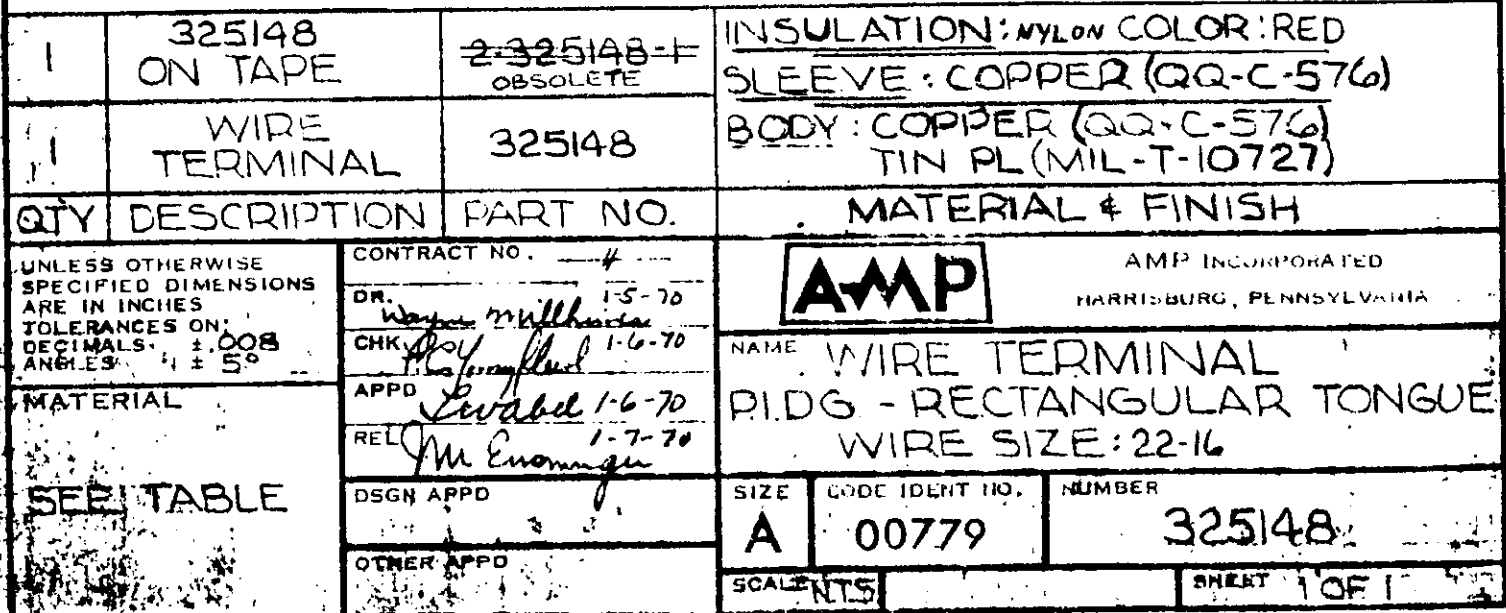 1
325148
ON TAPE
2-325148-1
OBSOLETE
INSULATION: NYLON COLOR: RED
SLEEVE: COPPER (QQ-C-576)
BODY: COPPER (QQ-C-576)
TIN PL (MIL-T-10727)
1
WIRE
TERMINAL
325148
QTY DESCRIPTION PART NO. MATERIAL & FINISH
UNLESS OTHERWISE
SPECIFIED DIMENSIONS
ARE IN INCHES
TOLERANCES ON:
DECIMALS ±.008
ANGLES ± 5°
MATERIAL
SEE TABLE
CONTRACT NO.
DR. Wayne 1-5-70
CHK 1-6-70
APPD 1-6-70
REL 1-7-70
DSGN APPD
OTHER APPD
AMP
AMP INCORPORATED
HARRISBURG, PENNSYLVANIA
NAME WIRE TERMINAL
P.I.D.G - RECTANGULAR TONGUE
WIRE SIZE: 22-16
SIZE
A
CODE IDENT NO.
00779
NUMBER
325148
SCALE NTS
SHEET 1 OF 1